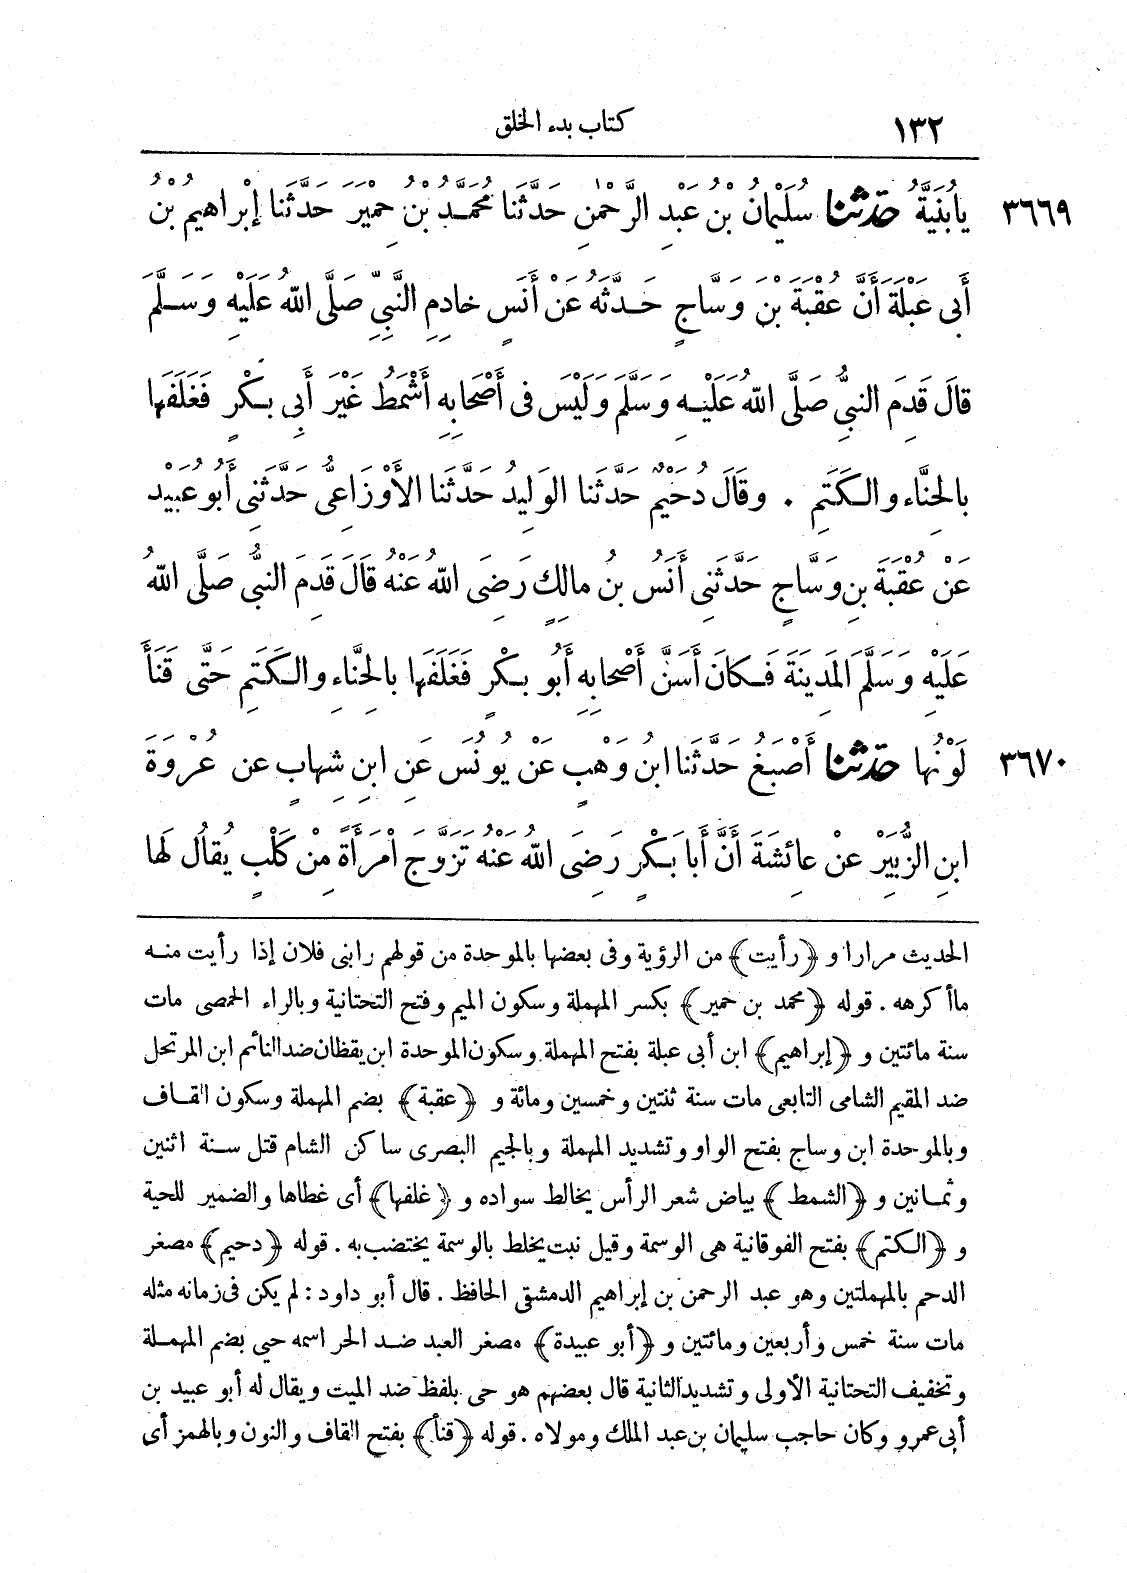 ١٣٢ كتاب بدء الخلق
٣٦٦٩ يَابُنَيَّةُ حَدَّثَنَا سُلَيْمَانُ بْنُ عَبْدِ الرَّحْمٰنِ حَدَّثَنَا مُحَمَّدُ بْنُ حِمْيَرَ حَدَّثَنَا إِبْرَاهِيمُ بْنُ
أَبِى عَبْلَةَ أَنَّ عُقْبَةَ بْنَ وَسَّاجٍ حَدَّثَهُ عَنْ أَنَسٍ خَادِمِ النَّبِيِّ صَلَّى اللّٰهُ عَلَيْهِ وَسَلَّمَ
قَالَ قَدِمَ النَّبِيُّ صَلَّى اللّٰهُ عَلَيْهِ وَسَلَّمَ وَلَيْسَ فِى أَصْحَابِهِ أَشْمَطُ غَيْرَ أَبِى بَكْرٍ فَغَلَفَهَا
بِالْحِنَّاءِ وَالْكَتَمِ . وَقَالَ دُحَيْمٌ حَدَّثَنَا الْوَلِيدُ حَدَّثَنَا الْأَوْزَاعِىُّ حَدَّثَنِى أَبُو عُبَيْدٍ
عَنْ عُقْبَةَ بْنِ وَسَّاجٍ حَدَّثَنِى أَنَسُ بْنُ مَالِكٍ رَضِىَ اللّٰهُ عَنْهُ قَالَ قَدِمَ النَّبِىُّ صَلَّى اللّٰهُ
عَلَيْهِ وَسَلَّمَ الْمَدِينَةَ فَكَانَ أَسَنَّ أَصْحَابِهِ أَبُو بَكْرٍ فَغَلَفَهَا بِالْحِنَّاءِ وَالْكَتَمِ حَتَّى قَنَأَ
٣٦٧٠ لَوْنُهَا حَدَّثَنَا أَصْبَغُ حَدَّثَنَا ابْنُ وَهْبٍ عَنْ يُونُسَ عَنِ ابْنِ شِهَابٍ عَنْ عُرْوَةَ
ابْنِ الزُّبَيْرِ عَنْ عَائِشَةَ أَنَّ أَبَا بَكْرٍ رَضِىَ اللّٰهُ عَنْهُ تَزَوَّجَ امْرَأَةً مِنْ كَلْبٍ يُقَالُ لَهَا
الحديث مرارا و ﴿رأيت﴾ من الرؤية وفى بعضها بالموحدة من قولهم رابنى فلان إذا رأيت منه
ماأكرهه . قوله ﴿محمد بن حمير﴾ بكسر المهملة وسكون الميم وفتح التحتانية وبالراء الحمصى مات
سنة مائتين و ﴿إبراهيم﴾ ابن أبى عبلة بفتح المهملة وسكون الموحدة ابن يقظان ضد النائم ابن المرتحل
ضد المقيم الشامى التابعى مات سنة ثنتين وخمسين ومائة و ﴿عقبة﴾ بضم المهملة وسكون القاف
وبالموحدة ابن وساج بفتح الواو وتشديد المهملة وبالجيم البصرى ساكن الشام قتل سنة اثنين
وثمانين و ﴿الشمط﴾ بياض شعر الرأس يخالط سواده و ﴿غلفها﴾ أى غطاها والضمير للحية
و ﴿الكتم﴾ بفتح الفوقانية هى الوسمة وقيل نبت يخلط بالوسمة يختضب به . قوله ﴿دحيم﴾ مصغر
الدحم بالمهملتين وهو عبد الرحمن بن إبراهيم الدمشقى الحافظ . قال أبو داود : لم يكن فى زمانه مثله
مات سنة خمس وأربعين ومائتين و ﴿أبو عبيدة﴾ مصغر العبد ضد الحر اسمه حيى بضم المهملة
وتخفيف التحتانية الأولى وتشديد الثانية قال بعضهم هو حى بلفظ ضد الميت ويقال له أبو عبيد بن
أبى عمرو وكان حاجب سليمان بن عبد الملك ومولاه . قوله ﴿قنأ﴾ بفتح القاف والنون وبالهمز أى